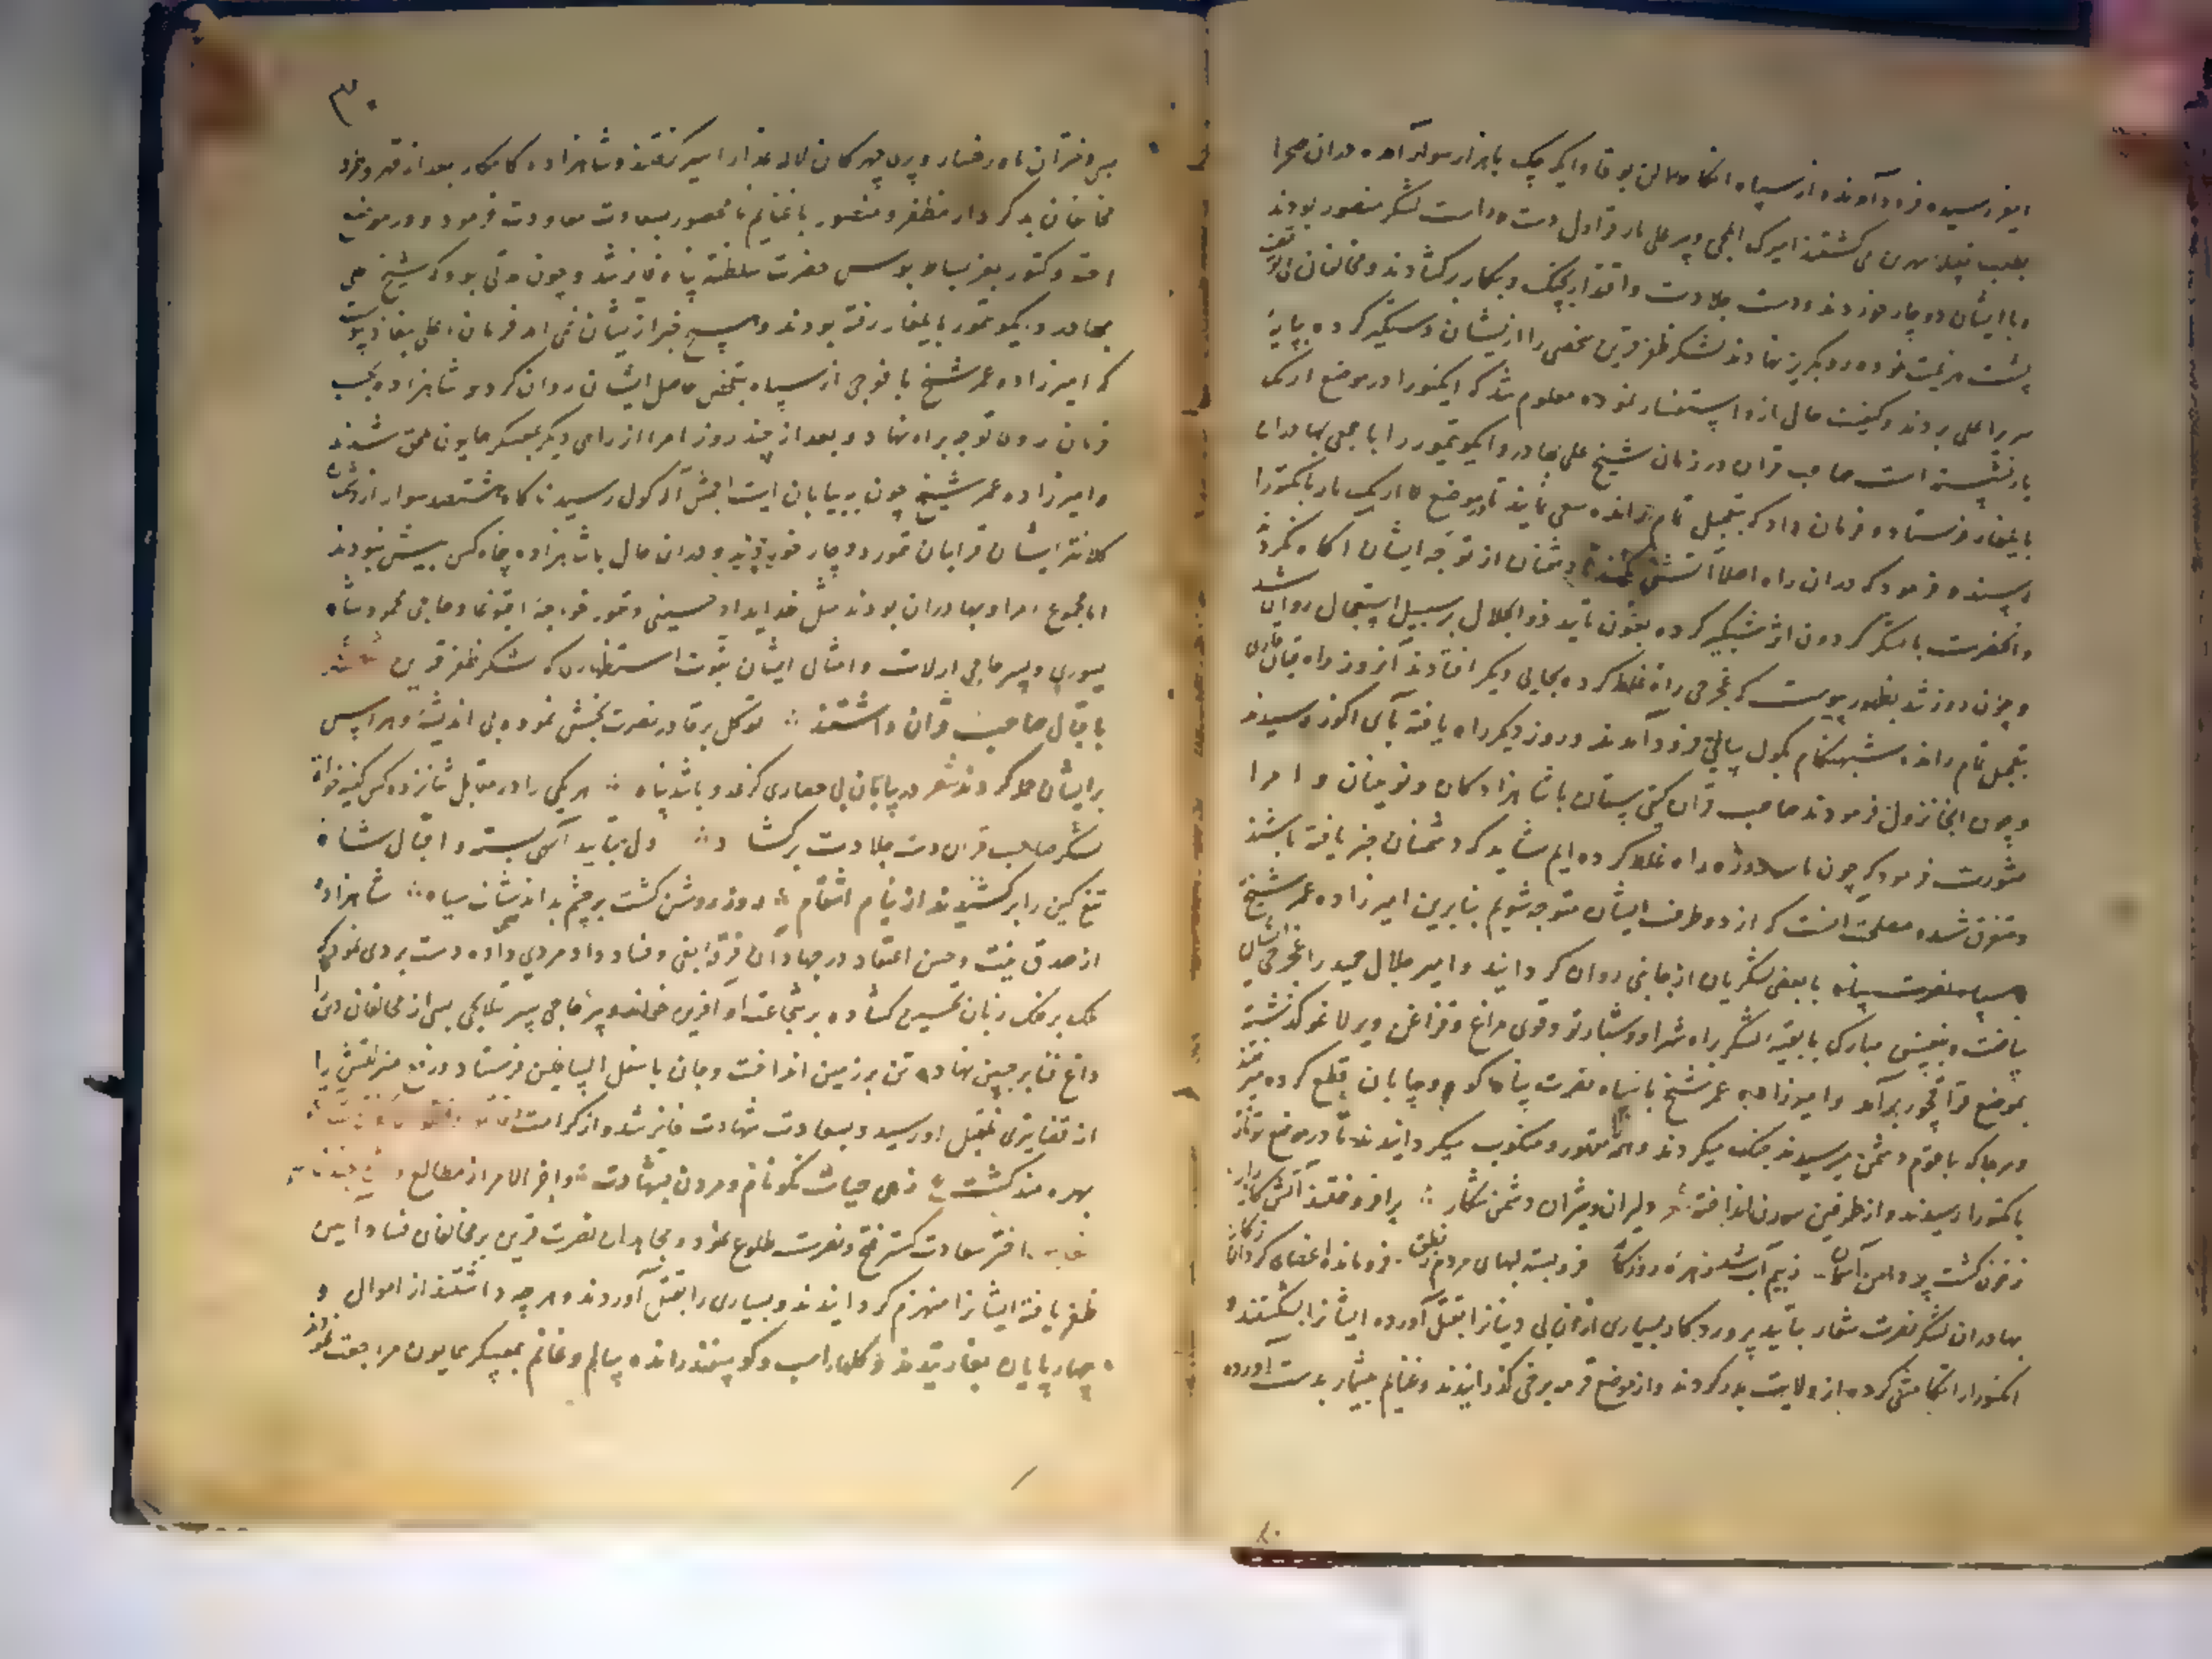 ایغر رسیده فرود آمدند و از سپاه انکا بوقا و ایکرچک با هزار سوار آمده بدان صحرا
بطلب قبیله بهرین می گشتند امیرک ایلچی و پیر علی تار قراول دست راست لشکر منصور بودند
و با ایشان دوچار خوردند و دست جلادت و اقتدار بجنگ و پیکار برگشادند و مخالفان
پشت هزیمت نموده رو بگریز نهادند لشکر ظفر قرین شخصی را ازیشان دستگیر کرده بپایهٔ
سریر اعلی بردند و کیفیت حال ازو استفسار نموده معلوم شد که انکتورا در موضع ارنک
یار نشسته است صاحب قران در زمان شیخ علی بهادر و ایکو تیمور را با جمعی بهادران
بایلغار فرستاد و فرمان داد که بتعجیل تمام رانده سعی نمایند تا در موضع ارنک یار بانکتورا
رسند و فرمود که در آن راه اصلا آتش نکنند تا دشمنان از توجه ایشان آگاه نگردند
و آنحضرت با لشکر گردون اثر شبگیر کرده بعون تایید ذو الجلال بر سبیل استعجال روان شد
و چون روز شد بظهور پیوست که غجرجی راه غلط کرده بجایی دیگر افتادند آنروز راه
بتعجیل تمام رانده شبهنگام بکول سالیق فرود آمدند و روز دیگر راه یافته بآی اکوز رسیدند
و چون آنجا نزول فرمودند صاحب قران گیتی ستان با شاهزادگان و نوینان و امرا
مشورت فرمود که چون ما سه روزه راه غلط کرده ایم شاید که دشمنان خبر یافته باشند
و متفرق شده مصلحت آنست که از دو طرف ایشان متوجه شویم بنابرین امیرزاده عمر شیخ
سپاه نصرت پناه با بعضی لشکریان از جانبی روان گردانید و امیر جلال حمید را غجرجی ایشان
ساخت و بنفس مبارک با بقیه لشکر براه شرا و شبارتو و قوی مراغ و قراغن و بویرلاغو گذشته
بموضع قراغوجور برآمد و امیرزاده عمر شیخ با سپاه نصرت پناه کوه و بیابان قطع کرده میرفتند
و هر جا که با قوم دشمن میرسیدند جنگ میکردند و همه را مقهور و منکوب میگردانیدند تا در موضع
بانکتورا رسیدند و از طرفین سورن انداخته شعر دلیران و شیران دشمن شکار برافروختند آتش
ز خون گشت پر دامن آسمان ز بیم آب شد زهرهٔ روزگار فروبسته لبهای مردم ز نطق فرومانده اعضای گردان ز کار
بهادران لشکر نصرت شعار بتایید پروردگار بسیاری از آن بی دینان را بقتل آورده ایشان را بشکستند و
انکتورا را تکامشی کرده از ولایت بدر کردند و از موضع قرمه برقی گذرانیدند و غنایم بیشمار بدست آورده
۳۰
بسی دختران ماه رخسار و پری چهرگان لاله عذار اسیر گرفتند و شاهزاده کامکار بعد از قهر و طرد
مخالفان بدکردار مظفر و منصور با غنایم نامحصور بسعادت معاودت فرمود و در موضع
اخته دکتور بعز بساط بوس حضرت سلطنت پناه فایز شد و چون مدتی بود که شیخ علی
بهادر و ایکو تیمور بایلغار رفته بودند و هیچ خبر ازیشان نمی آمد فرمان اعلی بنفاذ پیوست
که امیرزاده عمر شیخ با فوجی از سپاه بتفحص حاصل ایشان روان گردد و شاهزاده بحسب
فرمان روی توجه براه نهاد و بعد از چند روز امرا از راهی دیگر بمعسکر همایون ملحق شدند
و امیرزاده عمر شیخ چون ببیابان ایت اجمش آله کول رسید ناگاه هشتصد سوار از دشمن
کلانتر ایشان قرابان تیمور دوچار خوردند و در آن حال با شاهزاده پنجاه کس بیش نبودند
اما مجموع امرا و بهادران بودند مثل خدایداد حسینی و قمور خواجه اقبوغا و حاجی محمود شاه
یسوری و پسر حاجی ارلات و امثال ایشان بقوت استظهاری که لشکر ظفر قرین
باقبال صاحب قران داشتند توکل بر قادر نصرت بخش نموده بی اندیشه و هراس
بر ایشان حمله کردند شعر در بیابان بی حصاری کزو باشد پناه هر یکی را در مقابل شانزده کس کینه خواه
لشکر صاحب قران دست جلادت برگشاد دل بتایید آلهی بسته و اقبال شاه
تیغ کین را برکشیدند از نیام انتقام روز روشن گشت بر چشم بداندیشان سیاه شاهزاده
از صدق نیت و حسن اعتقاد در جهاد آن فرقهٔ بغی و فساد داد مردی داده دست بردی نمود که
ملک بر فلک زبان تحسین گشاده بر شجاعت او آفرین خواند و پیر حاجی پسر تیلانجی بسی از مخالفان را
داغ فنا بر جبین نهاده تن بر زمین انداخت و جان باسفل السافلین فرستاد
از قضا تیری بمقتل او رسید و بسعادت شهادت فایز شد و از کرامت
بهره مند گشت زهی حیات نکو نام و مردن بشهادت و آخر الامر از مطالع
اختر سعادت گستر فتح و نصرت طلوع نمود و مجاهدان نصرت قرین بر مخالفان فساد آیین
ظفر یافته ایشانرا منهزم گردانیدند و بسیاری را بقتل آوردند و هرچه داشتند از اموال و
چهارپایان بغارتیدند و گلهاء اسب و گوسفند رانده سالم و غانم بمعسکر همایون مراجعت نمودند